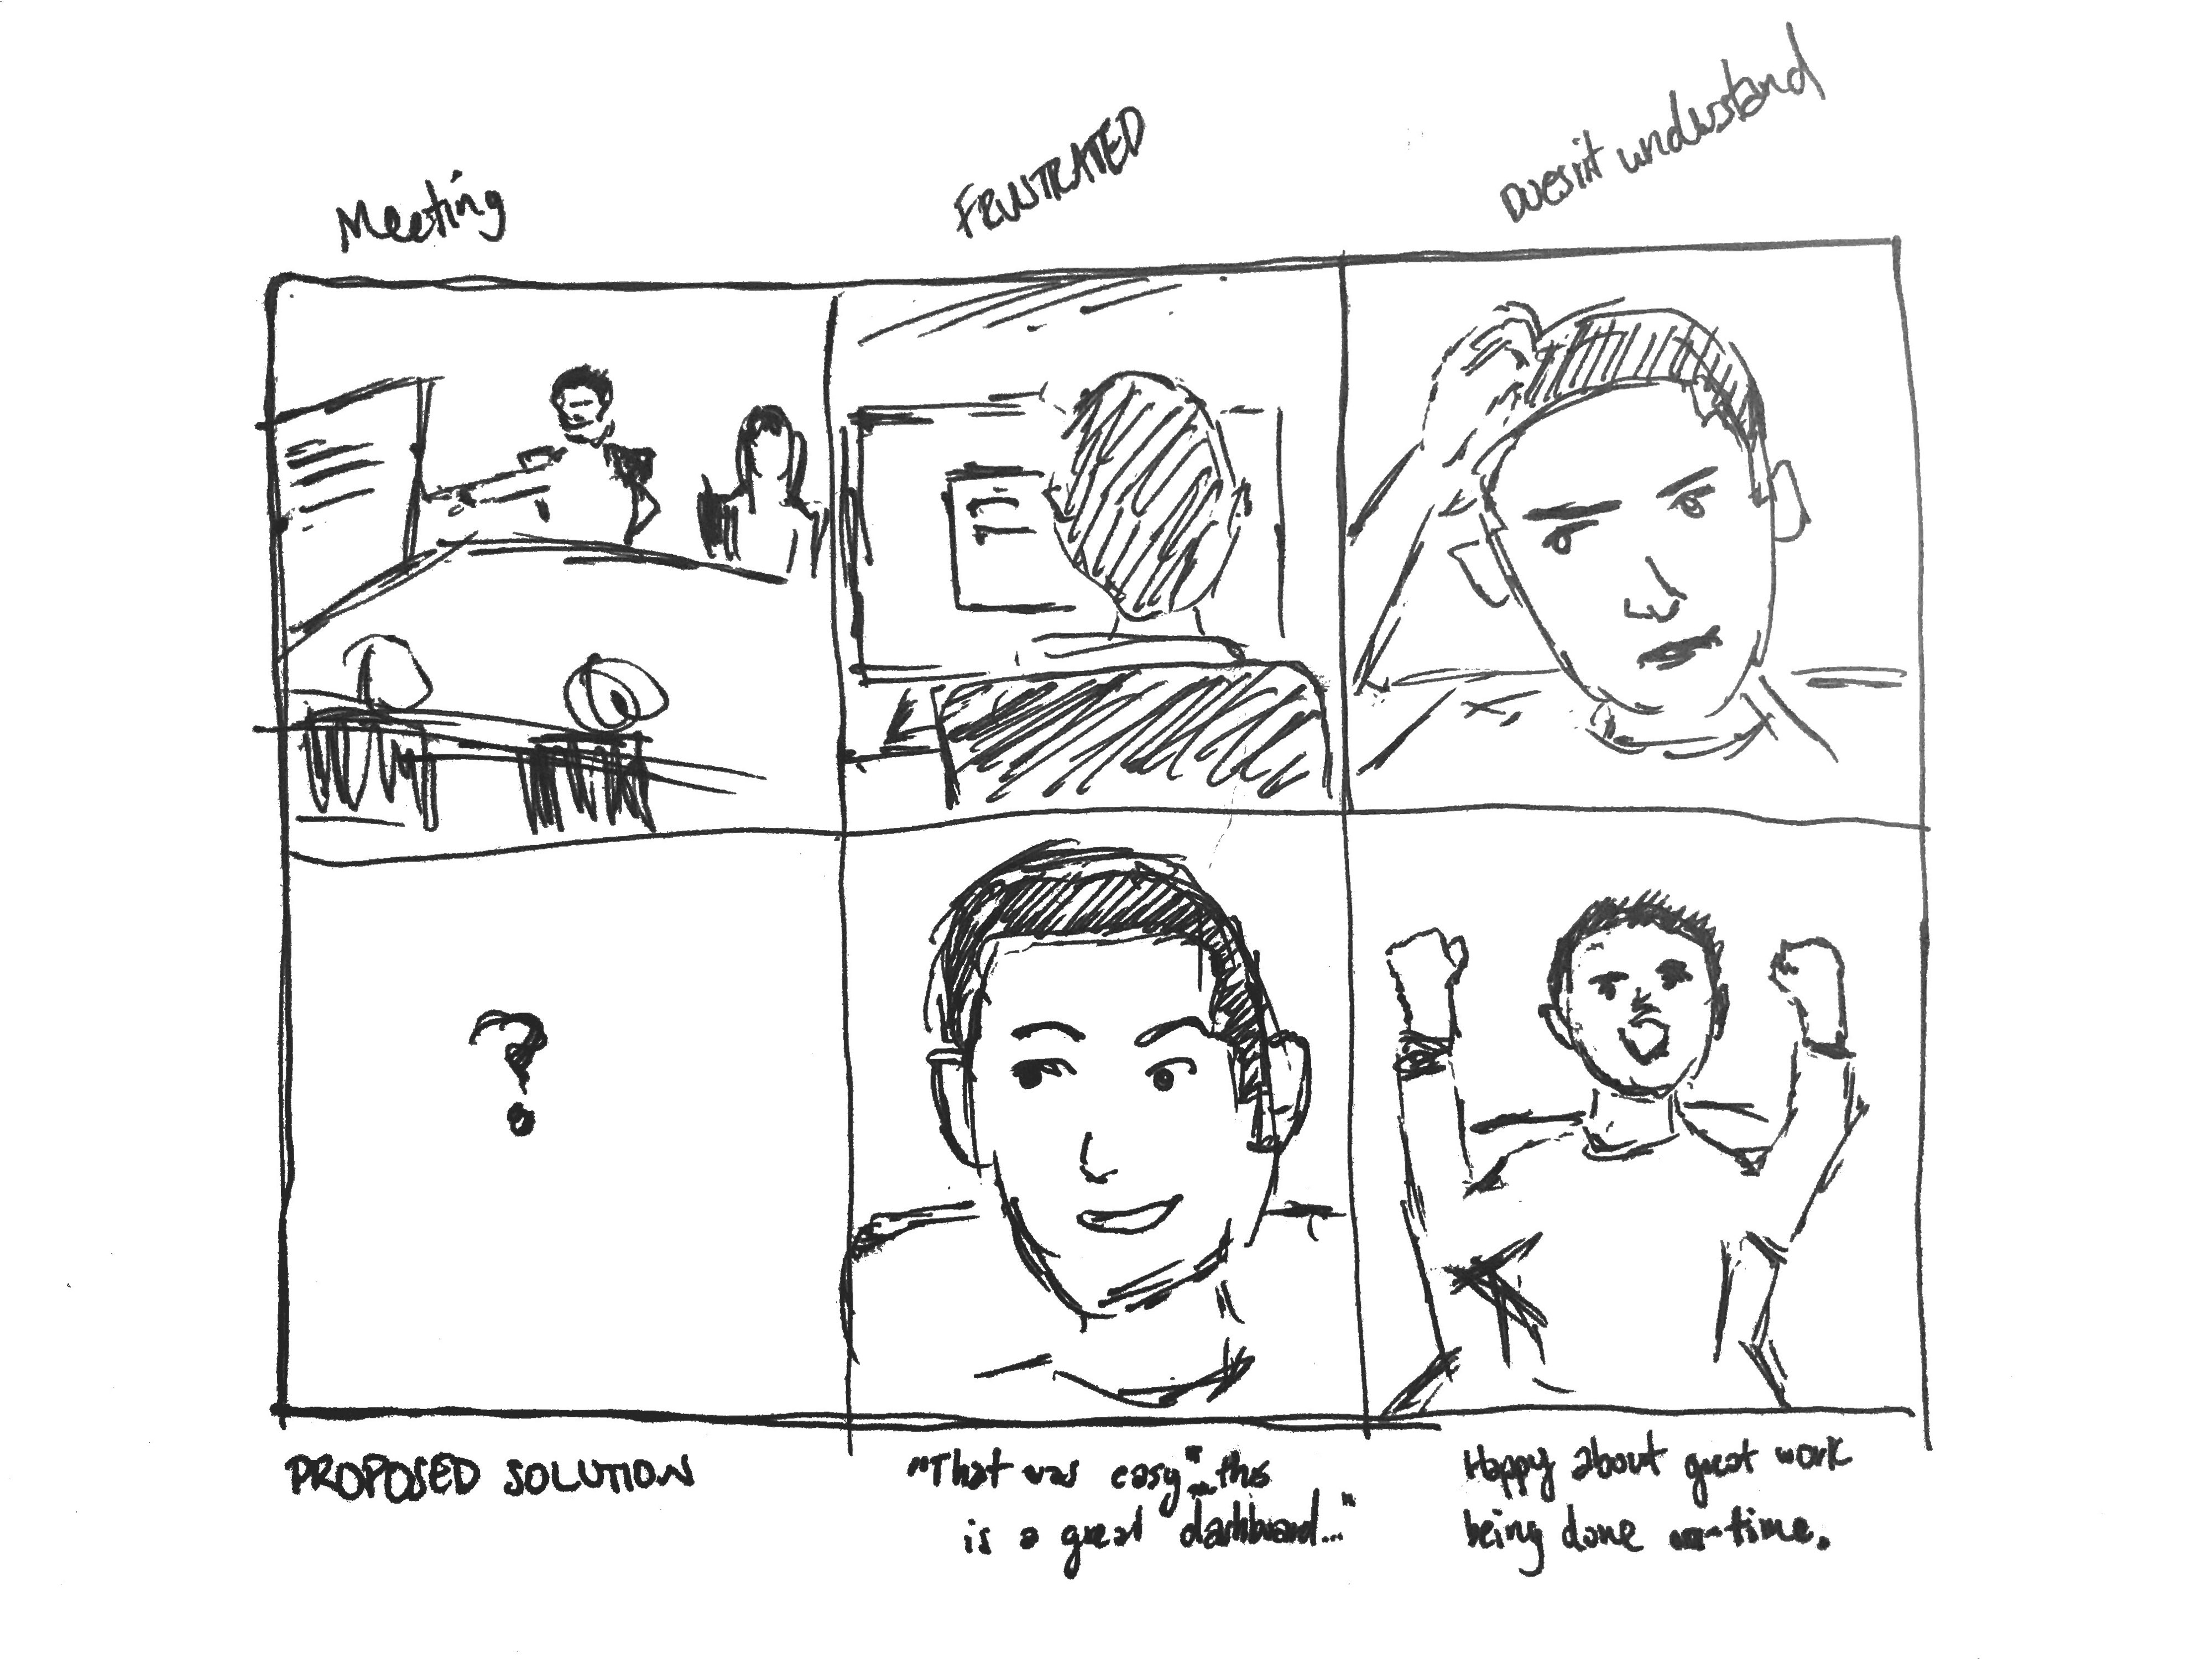 Meeting
FRUSTRATED
Doesn't understand
?
PROPOSED SOLUTION
"That was easy"... this
is a great dashboard..."
Happy about great work
being done on-time.